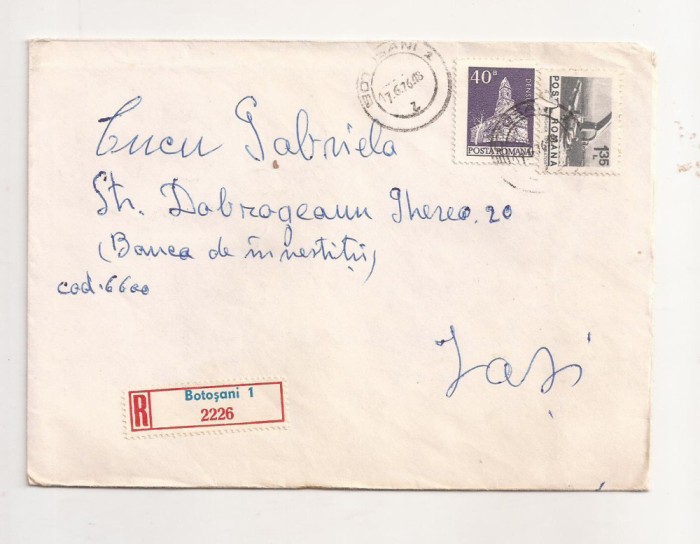 BOTOȘANI 2
17.6.76.
2
40B
DENSUȘ
POSTA ROMANA
POSTA ROMANA
1,35 L
Cucu Gabriela
Str. Dobrogeanu Gherea. 20
(Banca de învestiții)
cod. 6600
Iași
R Botoșani 1
2226